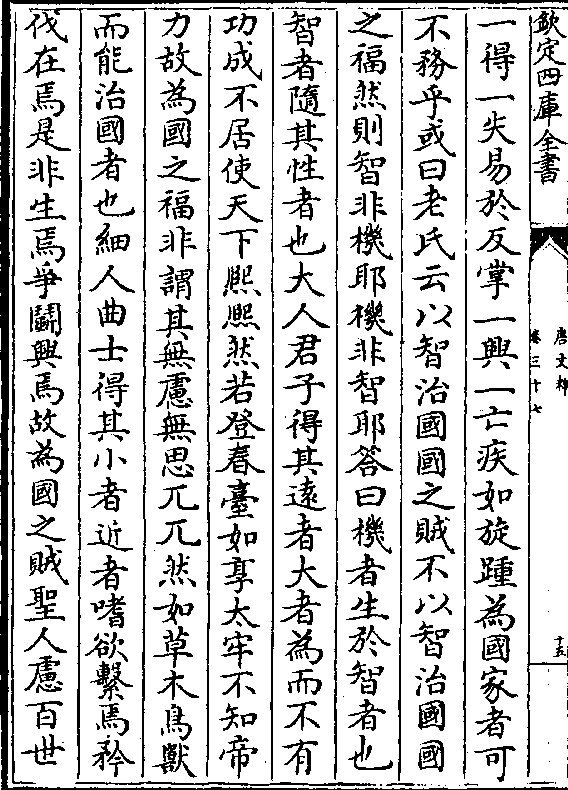 欽定四庫全書
唐文粹
卷三十七
十五
一得一失易於反掌一興一亡疾如旋踵為國家者可
不務乎或曰老氏云以智治國國之賊不以智治國國
之福然則智非機耶機非智耶答曰機者生於智者也
智者隨其性者也大人君子得其遠者大者為而不有
功成不居使天下熈熈然若登春臺如享太牢不知帝
力故為國之福非謂其無慮無思兀兀然如草木鳥獸
而能治國者也細人曲士得其小者近者嗜欲繫焉矜
伐在焉是非生焉爭鬭興焉故為國之賊聖人慮百世